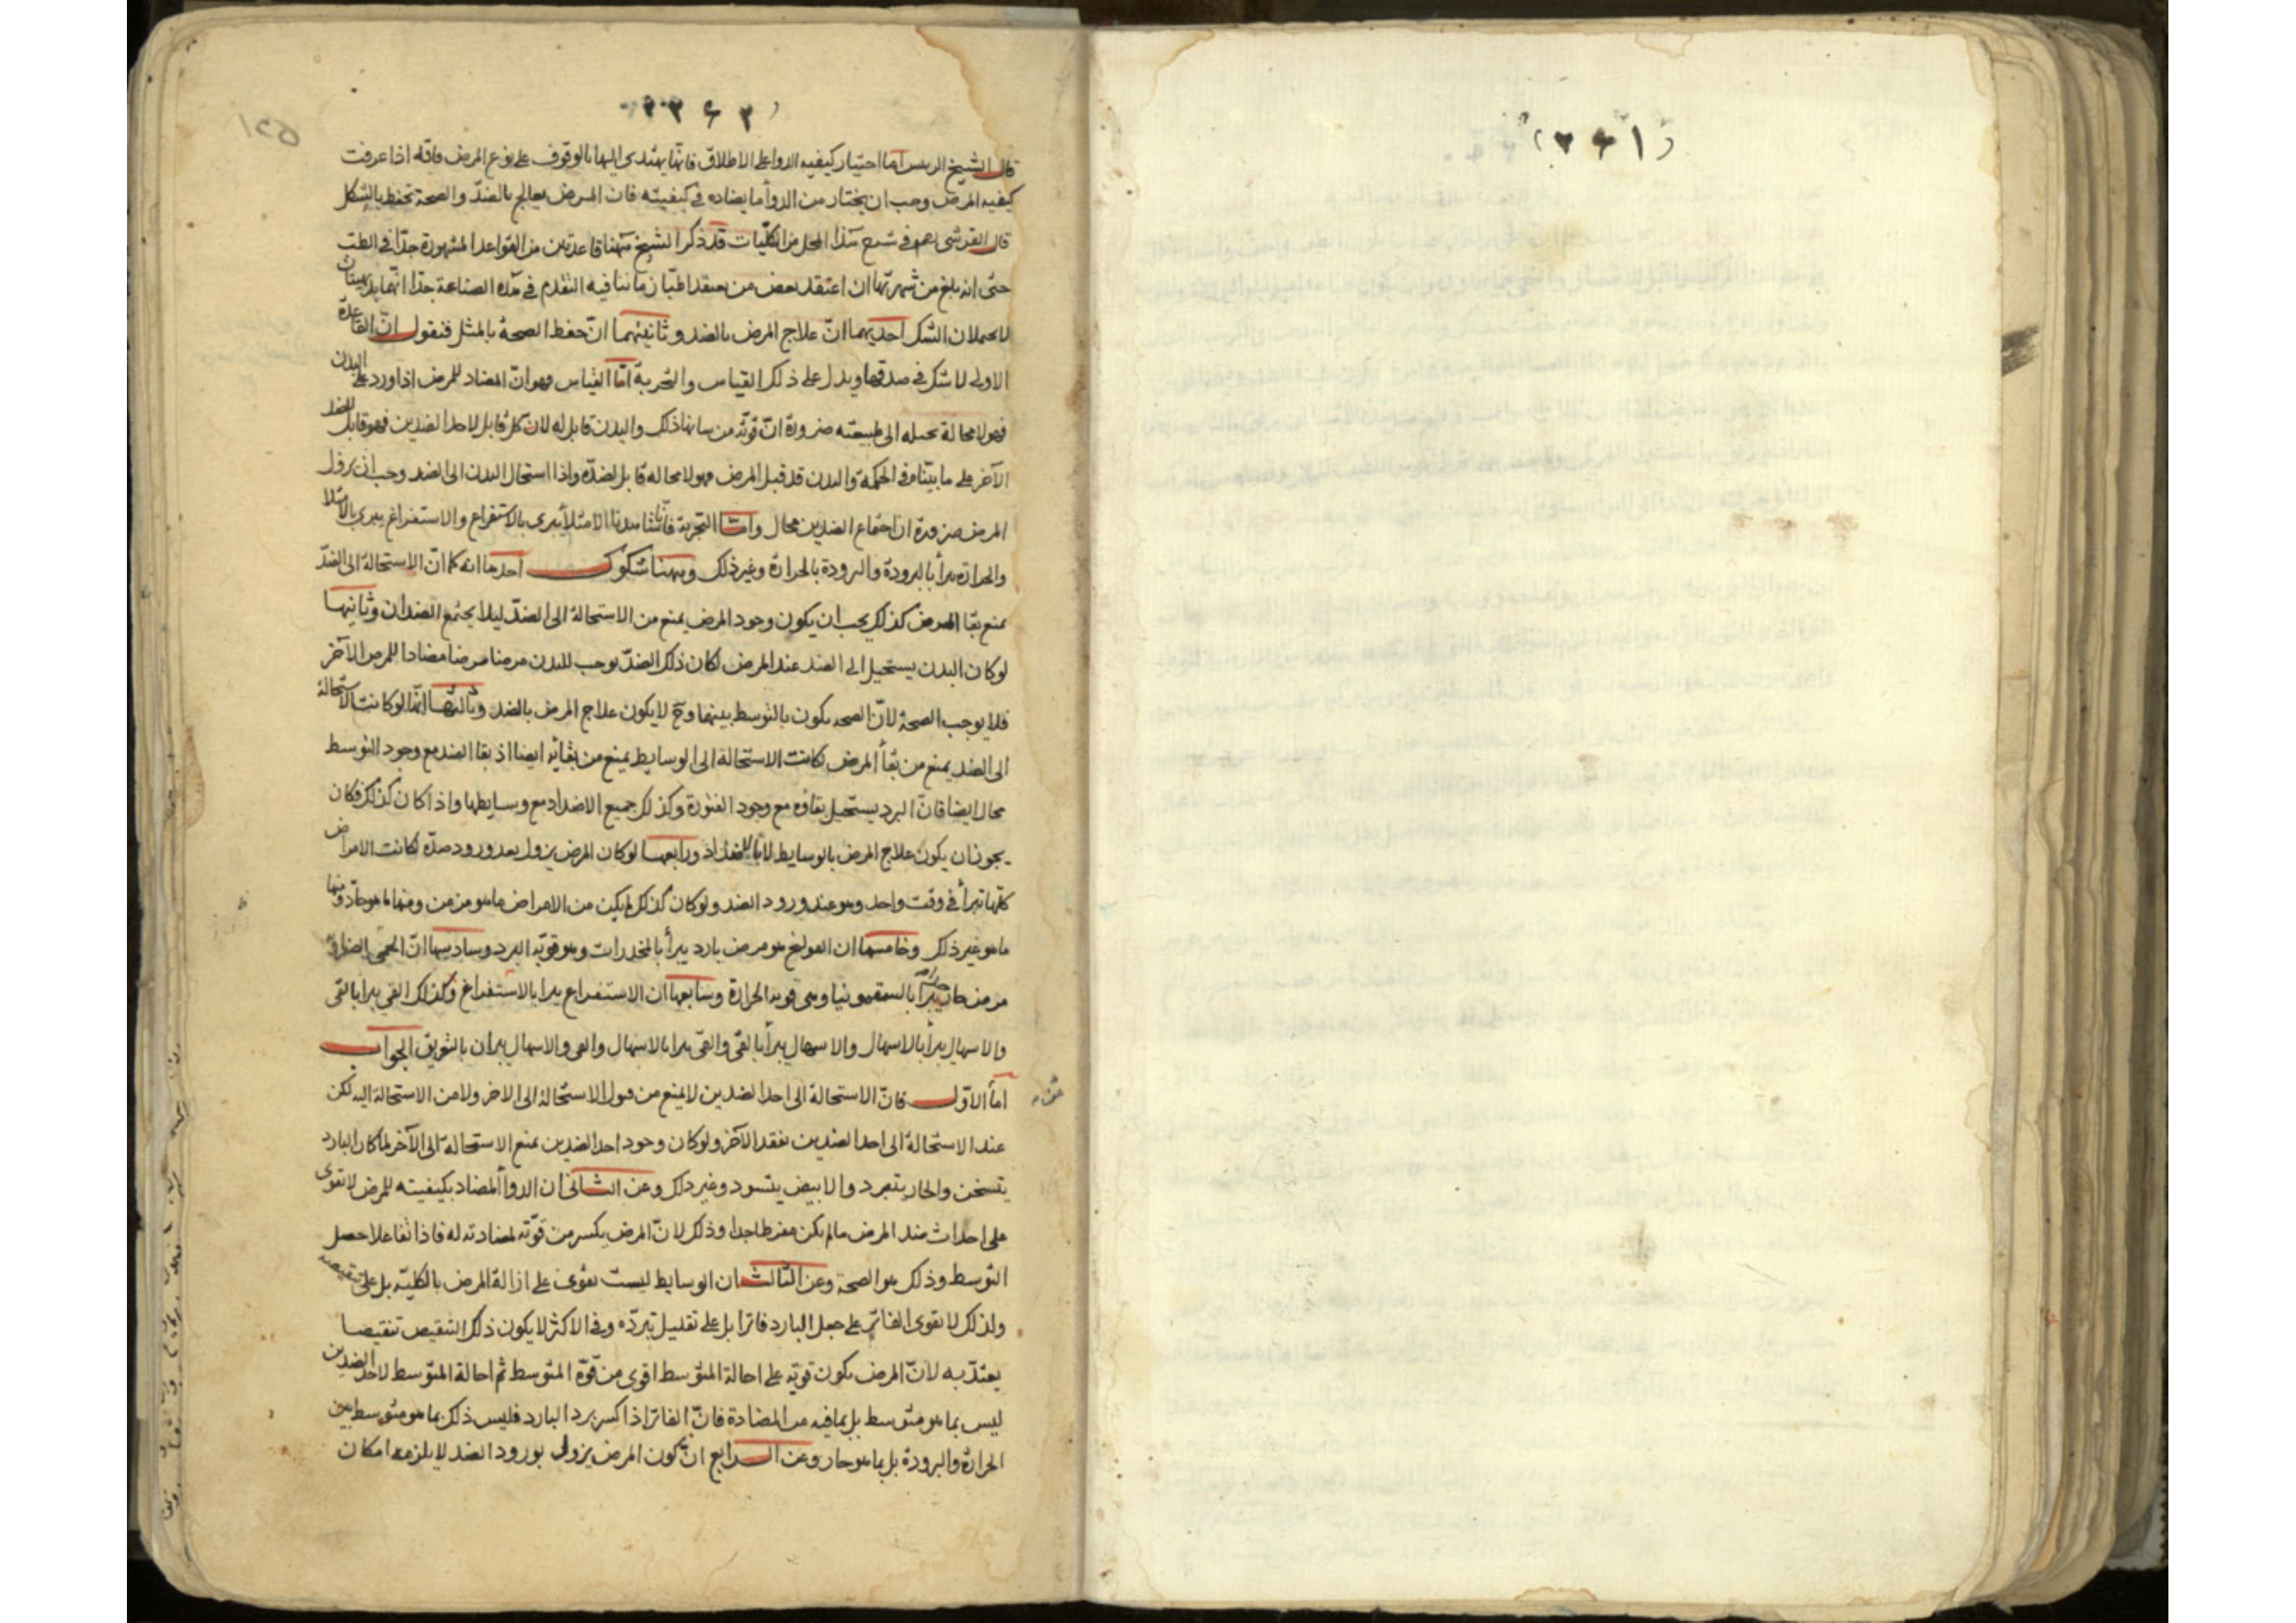 (٢٦١)
٢٦٢
قال الشيخ الرئيس اما اختيار كيفيه الدوا على الاطلاق فانها يهتدى اليها بالوقوف على نوع المرض فانه اذا عرفت
كيفيه المرض وجب ان يختار من الدوأ ما يضاده فى كيفيته فان المرض يعالج بالضد والصحة تحفظ بالشكل
قال القرشى فى شرح هذا المحل من الكليات قد ذكر الشيخ ههنا قاعدتين من القواعد المشهورة جدا فى الطب
حتى انه بلغ من شهرتها ان اعتقد بعض من يعتقد انها فيه التقدم فى هذه الصناعة جدا انهما بديهيتان
لا يحتملان الشك احديهما ان علاج المرض بالضد وثانيتهما ان حفظ الصحة بالمثل فنقول ان القاعدة
الاولى لا شك فى صدقها ويدل على ذلك القياس والتجربة امّا القياس فهو انّ المضاد للمرض اذا ورد على البدن
فهو لا محالة يحيله الى طبيعته ضرورة انّ قوته من شانها ذلك والبدن قابل له لان كل قابل لاحد الضدين فهو قابل للضد
الآخر على ما بيناه فى الحكمة والبدن قد قبل المرض فهو لا محاله قابل لضده واذا استحال البدن الى الضد وجب ان يزول
المرض ضرورة ان اجتماع الضدين محال وامّا التجربة فانّا شاهدنا الامتلأ يبرى بالاستفراغ والاستفراغ يبرى بالامتلا
والحرارة تبرأ بالبرودة والبرودة بالحرارة وغير ذلك وههنا شكوك احدها انه كما انّ الاستحالة الى الضدّ
يمنع بقا المرض كذلك يجب ان يكون وجود المرض يمنع من الاستحالة الى الضدّ ليلا يجتمع الضدان وثانيها
لو كان البدن يستحيل الى الضد عند المرض لكان ذلك الضدّ يوجب للبدن مرضا مضادا للمرض الآخر
فلا يوجب الصحة لانّ الصحه يكون بالتوسط بينهما وح لا يكون علاج المرض بالضد وثالثها انها لو كانت الاستحالة
الى الضد يمنع من بقأ المرض لكانت الاستحالة الى الوسايط يمنع من بقائه ايضا اذ بقا الضد مع وجود التوسط
محال ايضا فانّ البرد يستحيل بقاؤه مع وجود الفتورة وكذلك جميع الاضداد مع وسايطها واذا كان كذلك فكان
يجوز ان يكون علاج المرض بالوسايط لا بالاضداد ورابعها لو كان المرض يزول بعد ورود ضدّه لكانت الامراض
كلها تبرأ فى وقت واحد وهو عند ورود الضد ولو كان كذلك لم يكن من الامراض ما هو مزمن ومنها ما هو حادّ ومنها
ما هو غير ذلك وخامسها ان القولنج هو مرض بارد يبرأ بالمخدرات وهو قويّه البرد وسادسها انّ الحمى الصفراوية
مرض حار تبرأ بالسقمونيا وهى قويه الحرارة وسابعها ان الاستفراغ يبرا بالاستفراغ وكذلك القى يبرا بالقى
والاسهال يبرأ بالاسهال والاسهال يبرأ بالقى والقى يبرا بالاسهال والقى والاسهال يبران بالتعويق الجواب
امّا الاوّل فانّ الاستحالة الى احد الضدين لا يمنع من قبول الاستحالة الى الاخر ولا من الاستحالة اليه لكن
عند الاستحالة الى احد الضدين يفقد الآخر ولو كان وجود احد الضدين يمنع الاستحالة الى الآخر لما كان البارد
يتسخن والحار يتبرد والابيض يتسود وغير ذلك وعن الثانى ان الدوأ المضاد بكيفيته للمرض لا يقوى
على احداث ضد المرض ما لم يكن مفرطا جدا وذلك لانّ المرض يكسر من قوّته لمضادته له فاذا تفاعلا حصل
التوسط وذلك هو الصحة وعن الثالث ان الوسايط ليست تقوى على ازالة المرض بالكليّه بل على تنقيصه
ولذلك لا يقوى الفاتر على جعل البارد فاترا بل على تقليل تبرده وفى الاكثر لا يكون ذلك التنقيص تنقيصا
يعتدّ به لانّ المرض يكون قويّه على احالة المتوسط اقوى من قوّة المتوسط ثم احالة المتوسط لاحد الضدين
ليس بما هو متوسط بل بما فيه من المضادة فانّ الفاتر اذا كسر برد البارد فليس ذلك بما هو متوسط بين
الحرارة والبرودة بل بما هو حار وعن الرابع انّ كون المرض يزول بورود الضد لا يلزمه امكان